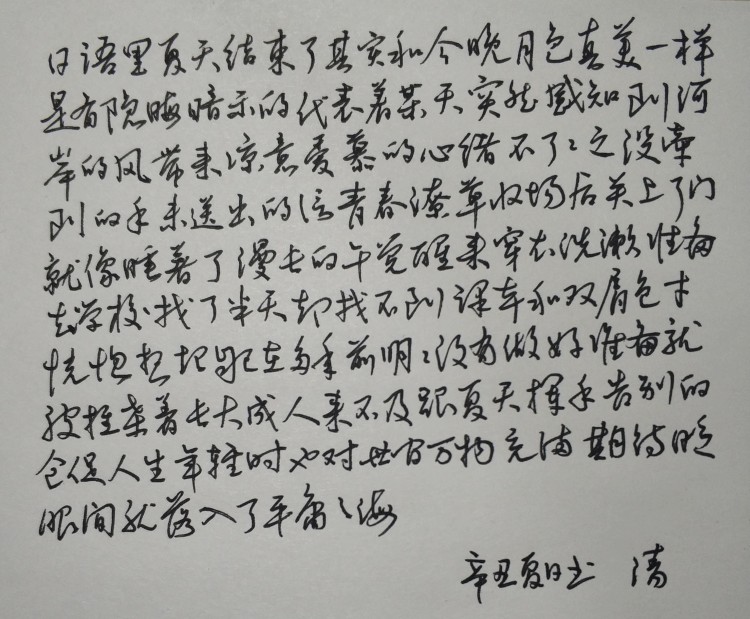 日语里夏天结束了其实和今晚月色真美一样
是有隐晦暗示的代表着某天突然感知到河
岸的风带来凉意爱慕的心绪不了了之没牵
到的手未送出的信青春潦草收场后关上了门
就像睡着了漫长的午觉醒来穿衣洗漱准备
去学校找了半天却找不到课本和双肩包才
恍惚想起都已在多年前明明没有做好准备就
被推桑着长大成人来不及跟夏天挥手告别的
仓促人生年轻时也对世间万物充满期待眨
眼间就落入了平庸之海
辛丑夏日书 清